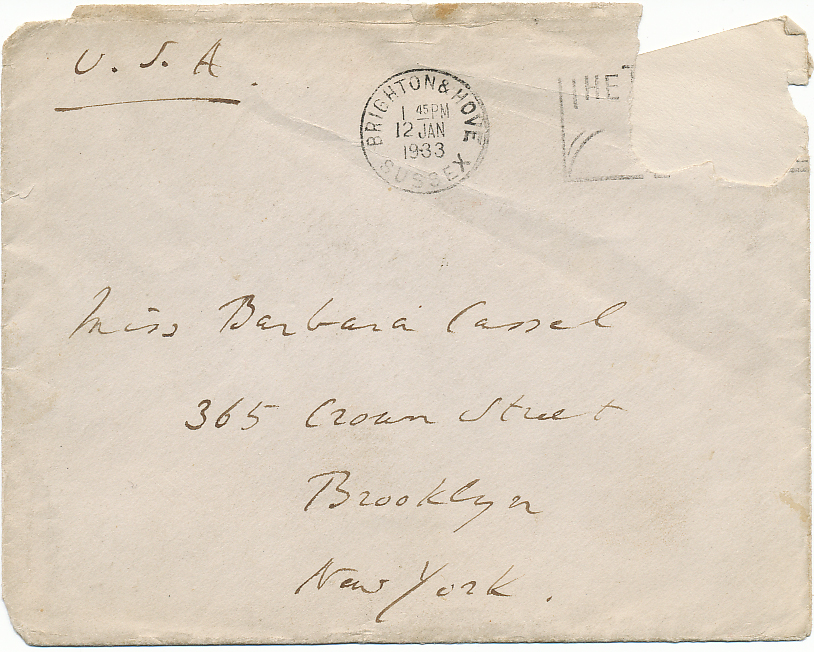 U.S.A.
BRIGHTON & HOVE
1 45 PM
12 JAN
1933
SUSSEX
HE
Miss Barbara Cassel
365 Crown Street
Brooklyn
New York.